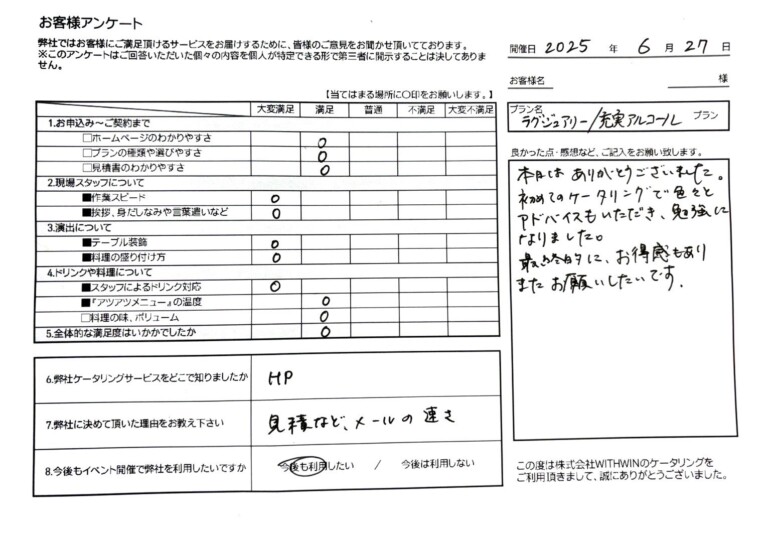 お客様アンケート
弊社ではお客様にご満足頂けるサービスをお届けするために、皆様のご意見をお聞かせ頂いております。
※このアンケートはご回答いただいた個々の内容を個人が特定できる形で第三者に開示することは決してありま
せん。
開催日 2025 年 6 月 27 日
お客様名 様
【当てはまる場所に〇印をお願いします。】
大変満足 満足 普通 不満足 大変不満足
1.お申込み～ご契約まで
□ホームページのわかりやすさ ○
□プランの種類や選びやすさ ○
□見積書のわかりやすさ ○
2.現場スタッフについて
■作業スピード ○
■挨拶、身だしなみや言葉遣いなど ○
3.演出について
■テーブル装飾 ○
■料理の盛り付け方 ○
4.ドリンクや料理について
■スタッフによるドリンク対応 ○
■『アツアツメニュー』の温度 ○
□料理の味、ボリューム ○
5.全体的な満足度はいかがでしたか ○
6.弊社ケータリングサービスをどこで知りましたか HP
7.弊社に決めて頂いた理由をお教え下さい 見積など、メールの速さ
8.今後もイベント開催で弊社を利用したいですか 今後も利用したい / 今後は利用しない
プラン名
ラグジュアリー/充実アルコール プラン
良かった点・感想など、ご記入をお願い致します。
本日は ありがとうございました。
初めてのケータリングで色々と
アドバイスもいただき、勉強に
なりました。
最終的に、お得感もあり
またお願いしたいです。
この度は株式会社WITHWINのケータリングを
ご利用頂きまして、誠にありがとうございました。